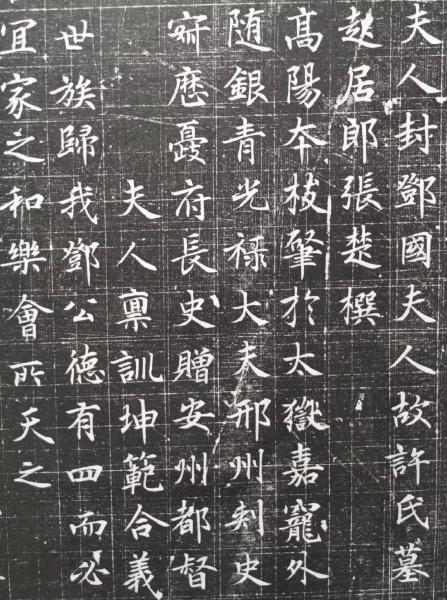 夫人封鄧國夫人故許氏墓
起居郎張楚樱
高陽本枝肇於太嶽嘉寵外
随銀青光禄大夫邢州刾史
竒歷夔府長史贈安州都督
夫人禀訓坤範合義
世族歸我鄧公德有四而必
宜家之和樂會所天之